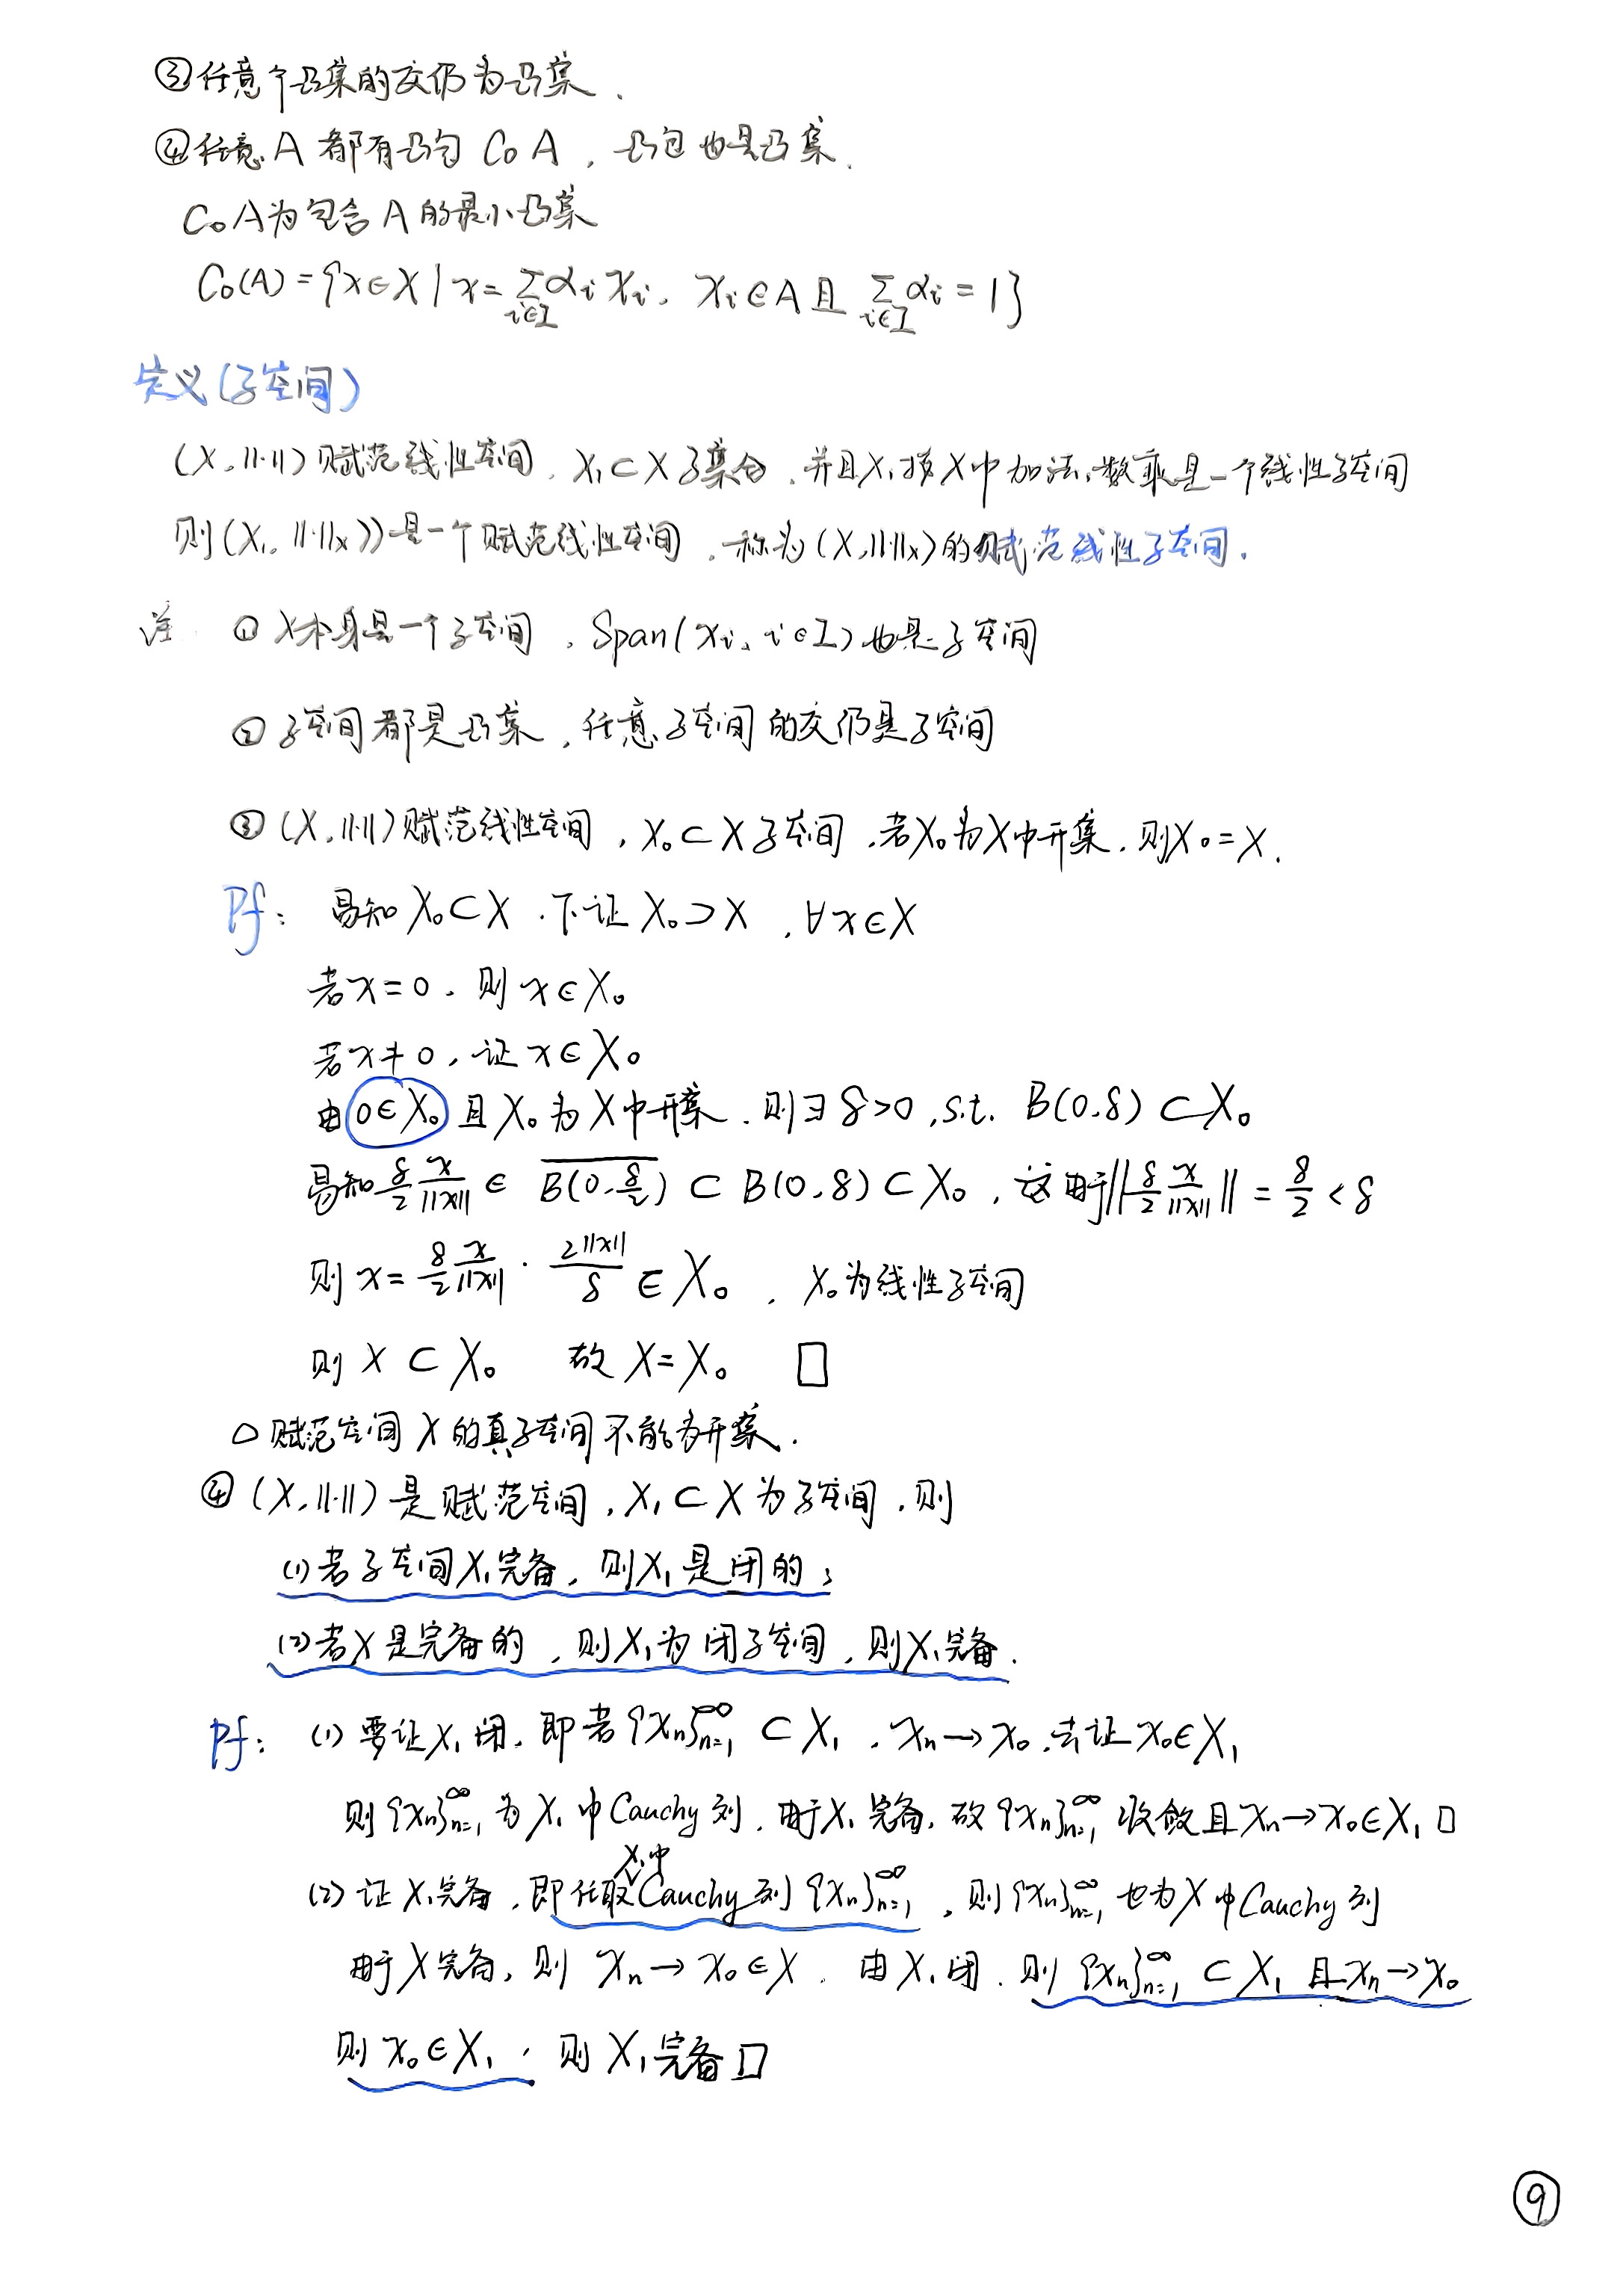 ③任意个凸集的交仍为凸集.
④任意A都有凸包 Co A，凸包也是凸集.
Co A为包含A的最小凸集
Co(A)={x∈X|x=∑_{i∈I}α_i x_i, x_i∈A且∑_{i∈I}α_i=1}
定义(子空间)
(X,||·||)赋范线性空间, X₁⊂X子集合, 并且X₁按X中加法,数乘是一个线性子空间
则(X₁,||·||_X))是一个赋范线性空间, 称为(X,||·||_X)的赋范线性子空间.
注 ① X本身是一个子空间, Span(x_i, i∈I)也是子空间
② 子空间都是凸集, 任意子空间的交仍是子空间
③ (X,||·||)赋范线性空间, X₀⊂X子空间, 若X₀为X中开集, 则X₀=X.
Pf: 易知X₀⊂X. 下证X₀⊃X, ∀x∈X
若x=0, 则x∈X₀
若x≠0, 证x∈X₀
由0∈X₀且X₀为X中开集, 则∃δ>0, s.t. B(0,δ)⊂X₀
易知 δ/2 x/||x|| ∈ \overline{B(0,δ/2)} ⊂ B(0,δ)⊂X₀, 这由于||δ/2 x/||x|| || = δ/2 < δ
则x= δ/2 x/||x|| · 2||x||/δ ∈ X₀, X₀为线性子空间
则X⊂X₀ 故X=X₀ □
○赋范空间X的真子空间不能为开集.
④ (X,||·||)是赋范空间, X₁⊂X为子空间, 则
(1)若子空间X₁完备, 则X₁是闭的;
(2)若X是完备的, 则X₁为闭子空间, 则X₁完备.
Pf: (1) 要证X₁闭, 即若{x_n}_{n=1}^∞⊂X₁, x_n→x₀, 去证x₀∈X₁
则{x_n}_{n=1}^∞为X₁中Cauchy列, 由于X₁完备, 故{x_n}_{n=1}^∞收敛且x_n→x₀∈X₁ □
(2) 证X₁完备, 即任取X₁中Cauchy列{x_n}_{n=1}^∞, 则{x_n}_{n=1}^∞也为X中Cauchy列
由于X完备, 则x_n→x₀∈X. 由X₁闭, 则{x_n}_{n=1}^∞⊂X₁且x_n→x₀
则x₀∈X₁, 则X₁完备 □
⑨